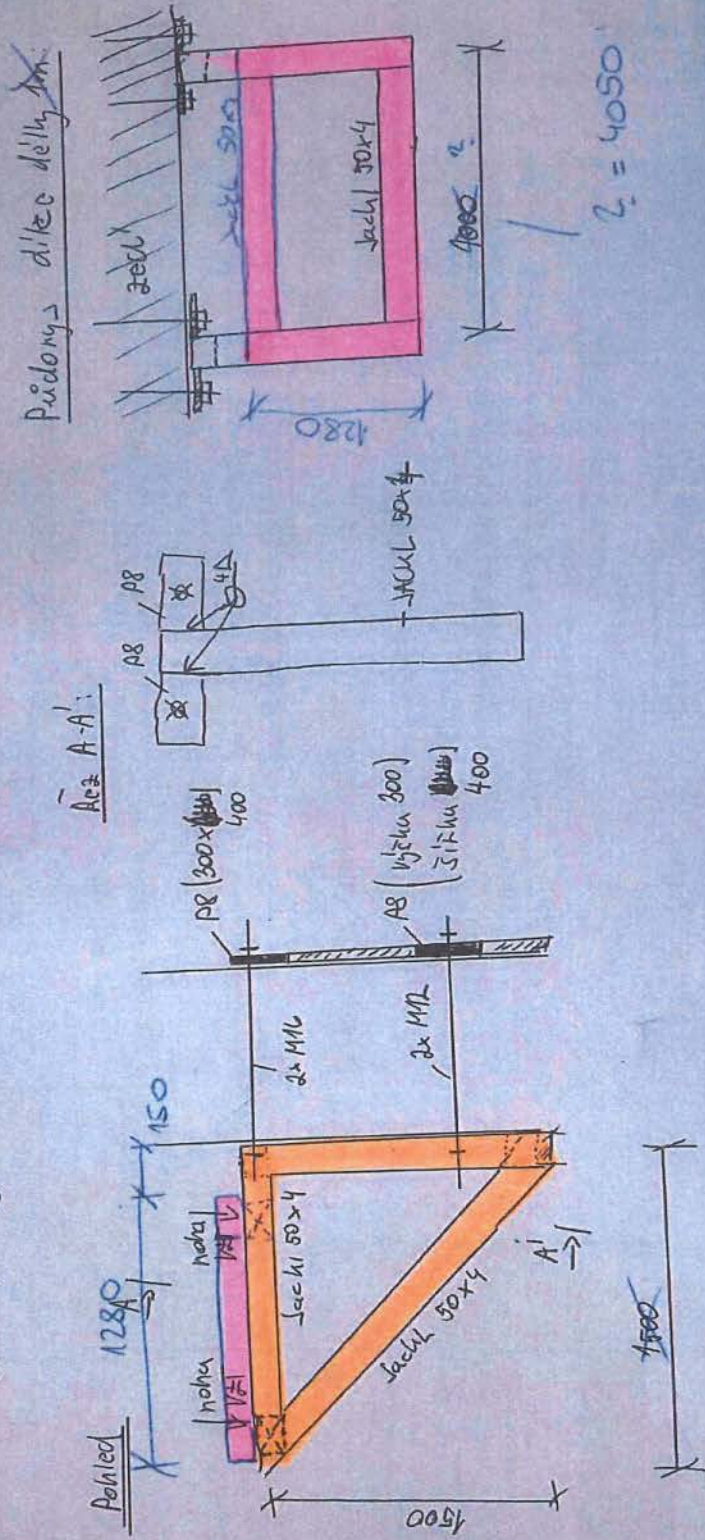 Pohled
1280
A
150
noha
noha
Jackl 50x4
Jackl 50x4
A'
1500
1500
2x M16
2x M12
P8 (300x
400
P8 (výšku 300)
šířku
400
Řez A-A':
P8
P8
4
JACKL 50x4
Půdorys dílce délky
zeď
Jackl 50x
Jackl 50x4
1280
4000 ?
? = 4050